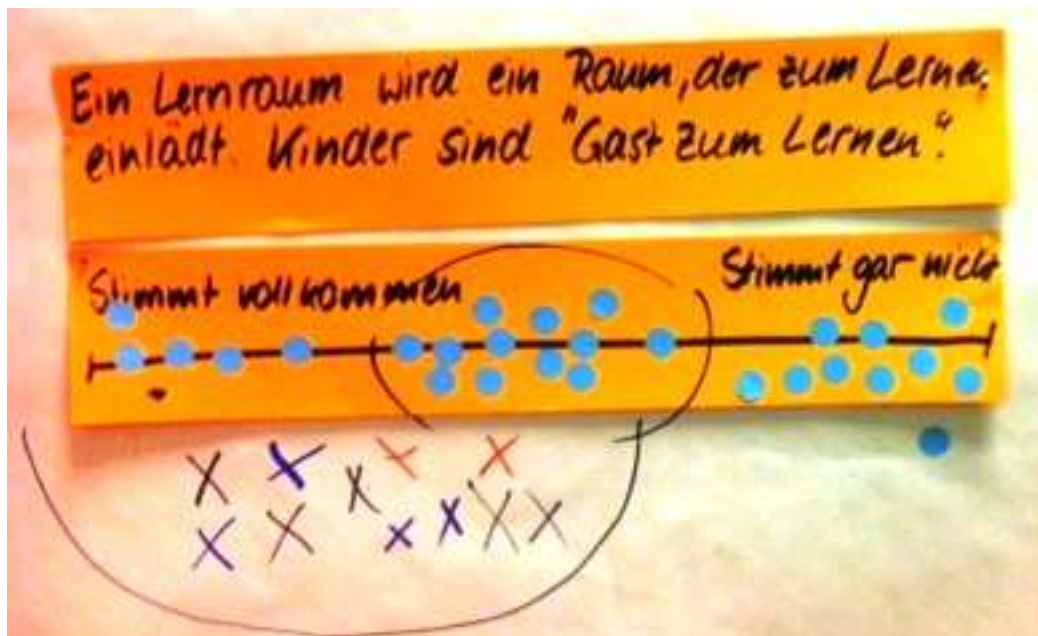 Ein Lernraum wird ein Raum, der zum Lernen
einlädt. Kinder sind "Gast zum Lernen".
Stimmt vollkommen
Stimmt gar nicht